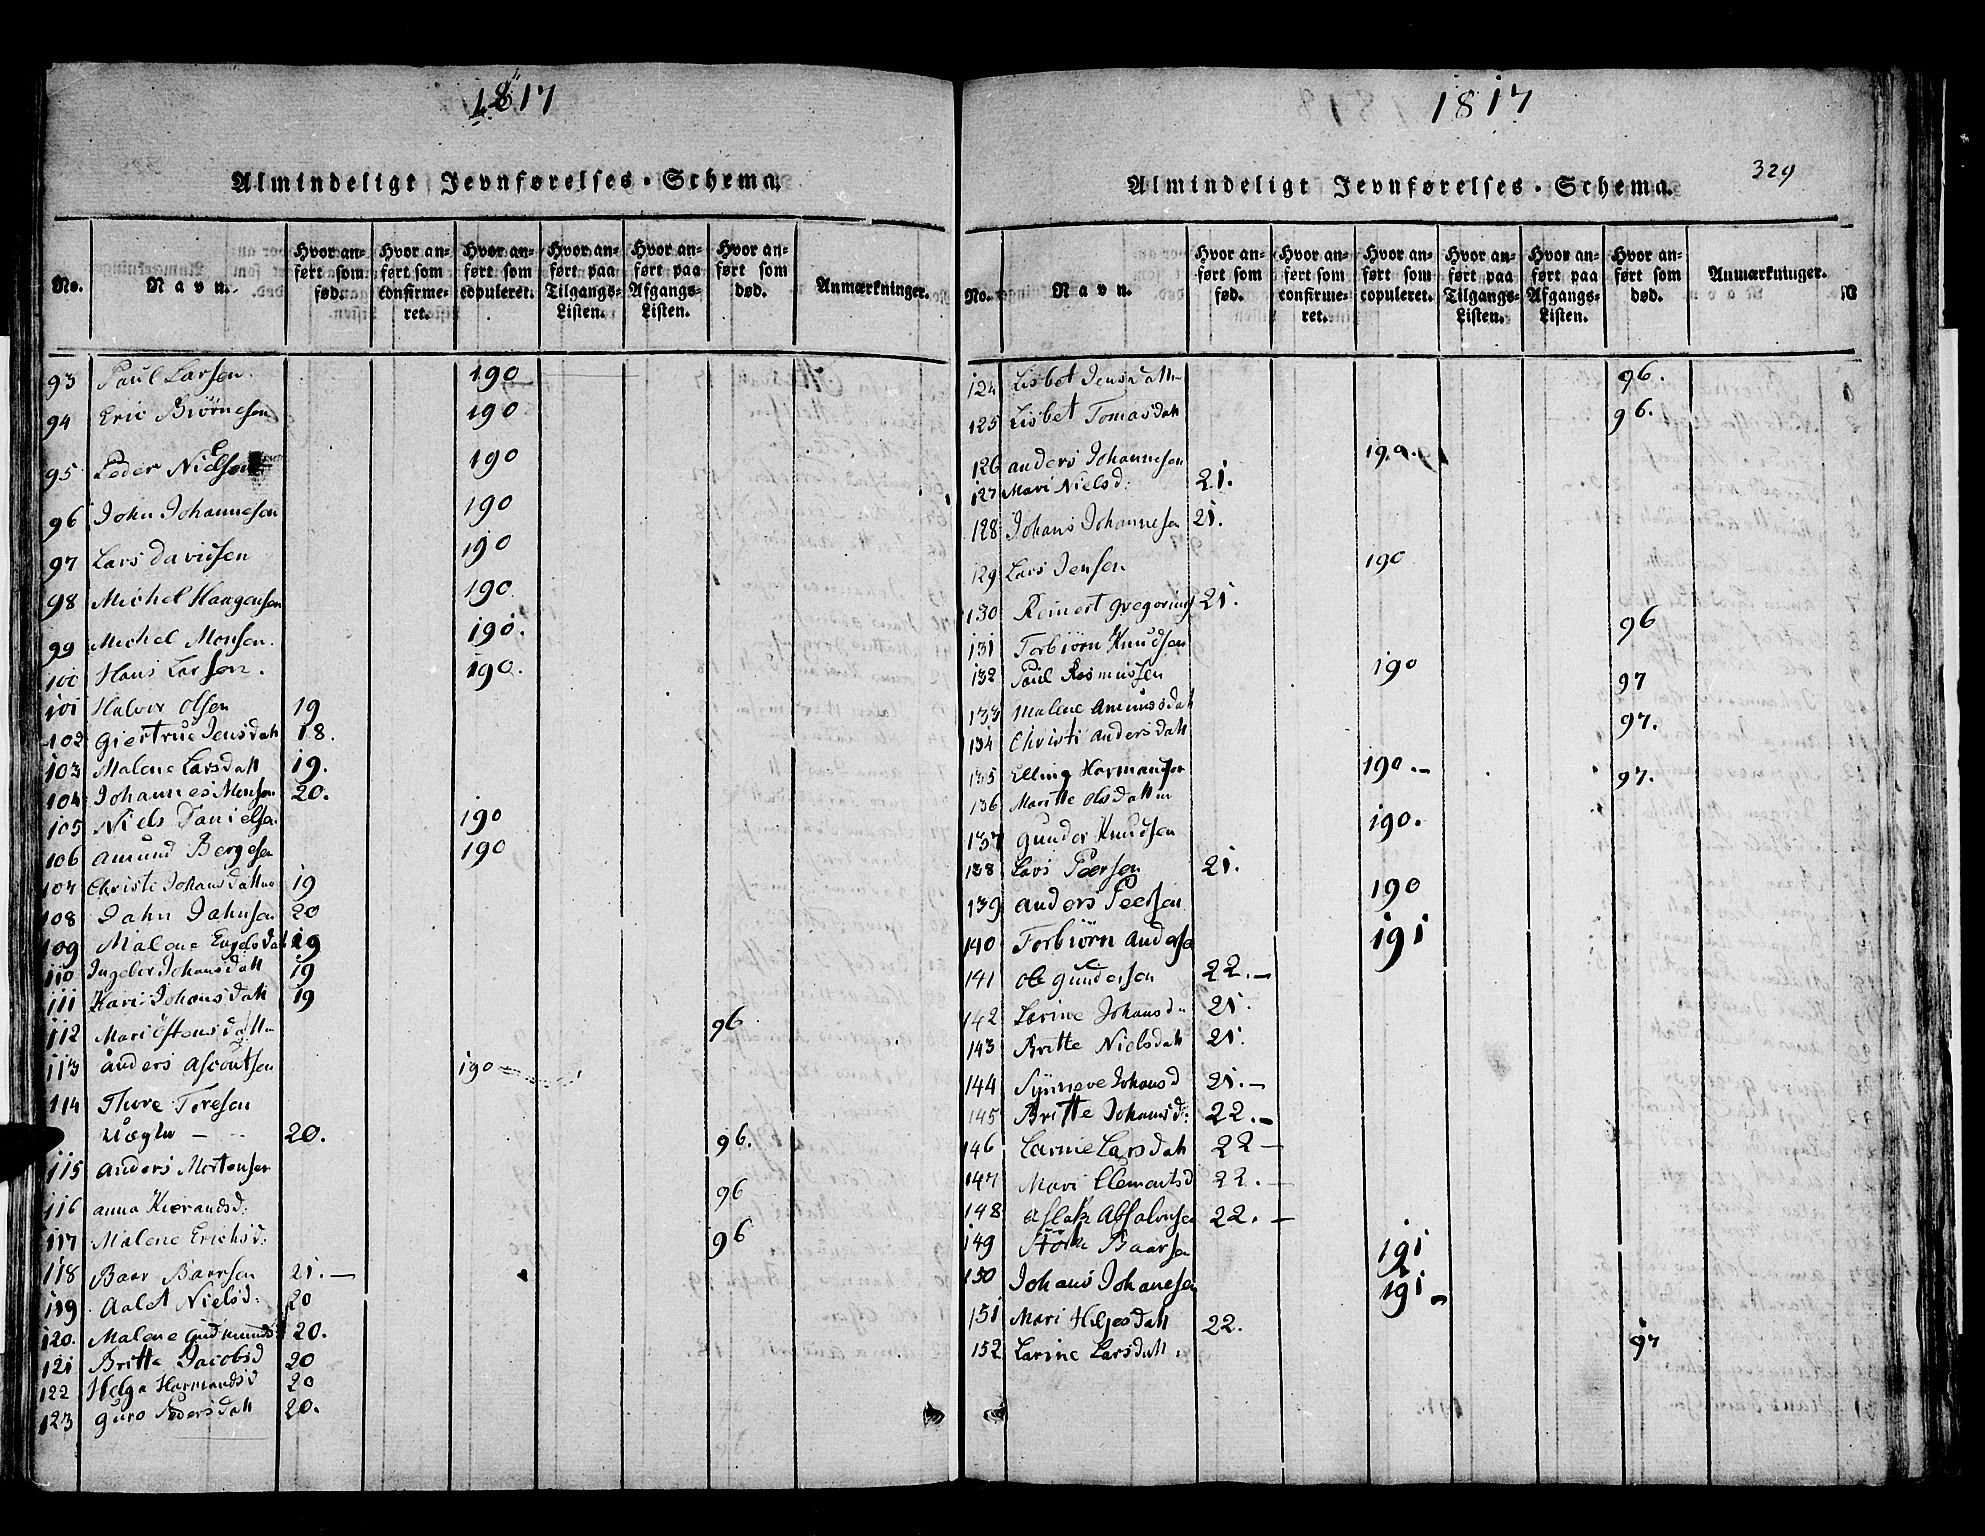 1817
Almindeligt Jevnførelses-Schema.
No. Navn. Hvor anført som fød. Hvor anført som confirmeret. Hvor anført som copuleret. Hvor anført paa Tilgangs-Listen. Hvor anført paa Afgangs-Listen. Hvor anført som død. Anmærkninger.
93 Paul Larsen. 190
94 Eric Biørnesen 190
95 Peder Nielsen 190
96 John Johannesen 190
97 Lars Davidsen 190
98 Michel Haagensen 190
99 Michel Monsen. 190.
100 Hans Larsen. 190.
101 Halvor Olsen 19
102 Giertrue Jensdatt 18.
103 Malene Larsdatt 19.
104 Johannes Monsen 20.
105 Niels Danielsen 190
106 Amund Bergesen 190
107 Christi Johansdatter 19
108 Jahn Jahnsen 20
109 Malene Engelsdatt 19
110 Ingebor Johansdatt 19
111 Kari Johansdatt 19
112 Mari Østensdatter 96
113 Anders Ascoutsen 190
114 Thore Toresen
Uægte - 20.
115 Anders Mortensen 96.
116 Anna Kierandsd: 96
117 Malene Erichsd: 96
118 Baar Baarsen 21.-
119 Aalet Nielsd: 20
120. Malene Gudmunds 20.
121 Britte Jacobsd 20
122 Helga Harmandsd 20
123 Guro Pedersdatt 20.
1817
329
Almindeligt Jevnførelses-Schema.
No. Navn. Hvor anført som fød. Hvor anført som confirmeret. Hvor anført som copuleret. Hvor anført paa Tilgangs-Listen. Hvor anført paa Afgangs-Listen. Hvor anført som død. Anmærkninger.
124 Lisbet Jensdatter 96.
125 Lisbet Tomasdatt 96.
126 Anders Johannesen 190.
127 Mari Nielsd: 21.
128 Johans Johannesen 21.
129 Lars Jensen 190
130 Reinert Gregorius 21.
131 Torbiørn Knudsen 96
132 Paul Rasmussen 190
133 Malene Amundsdatt 97
134 Christi Andersdatt 97.
135 Elling Harmansen 190.-
136 Maritte Olsdatter 97.
137 Gunder Knudsen 190.
138 Lars Peersen 21.
139 Anders Peersen 190
140 Torbiørn Andersen 191
141 Ole Gundersen 22.-
142 Larine Johansd.. 21.
143 Britte Nielsdatt 21.
144 Synneve Johansd 21.-
145 Britte Johansd: 22.-
146 Larine Larsdatt 22-
147 Mari Clemetsd 22.-
148 Aslak Absalonsen 22.-
149 Størk Baarsen 191
150 Johans Johanesen 191
151 Mari Helgesdatt 22.
152 Larine Larsdatt. 97